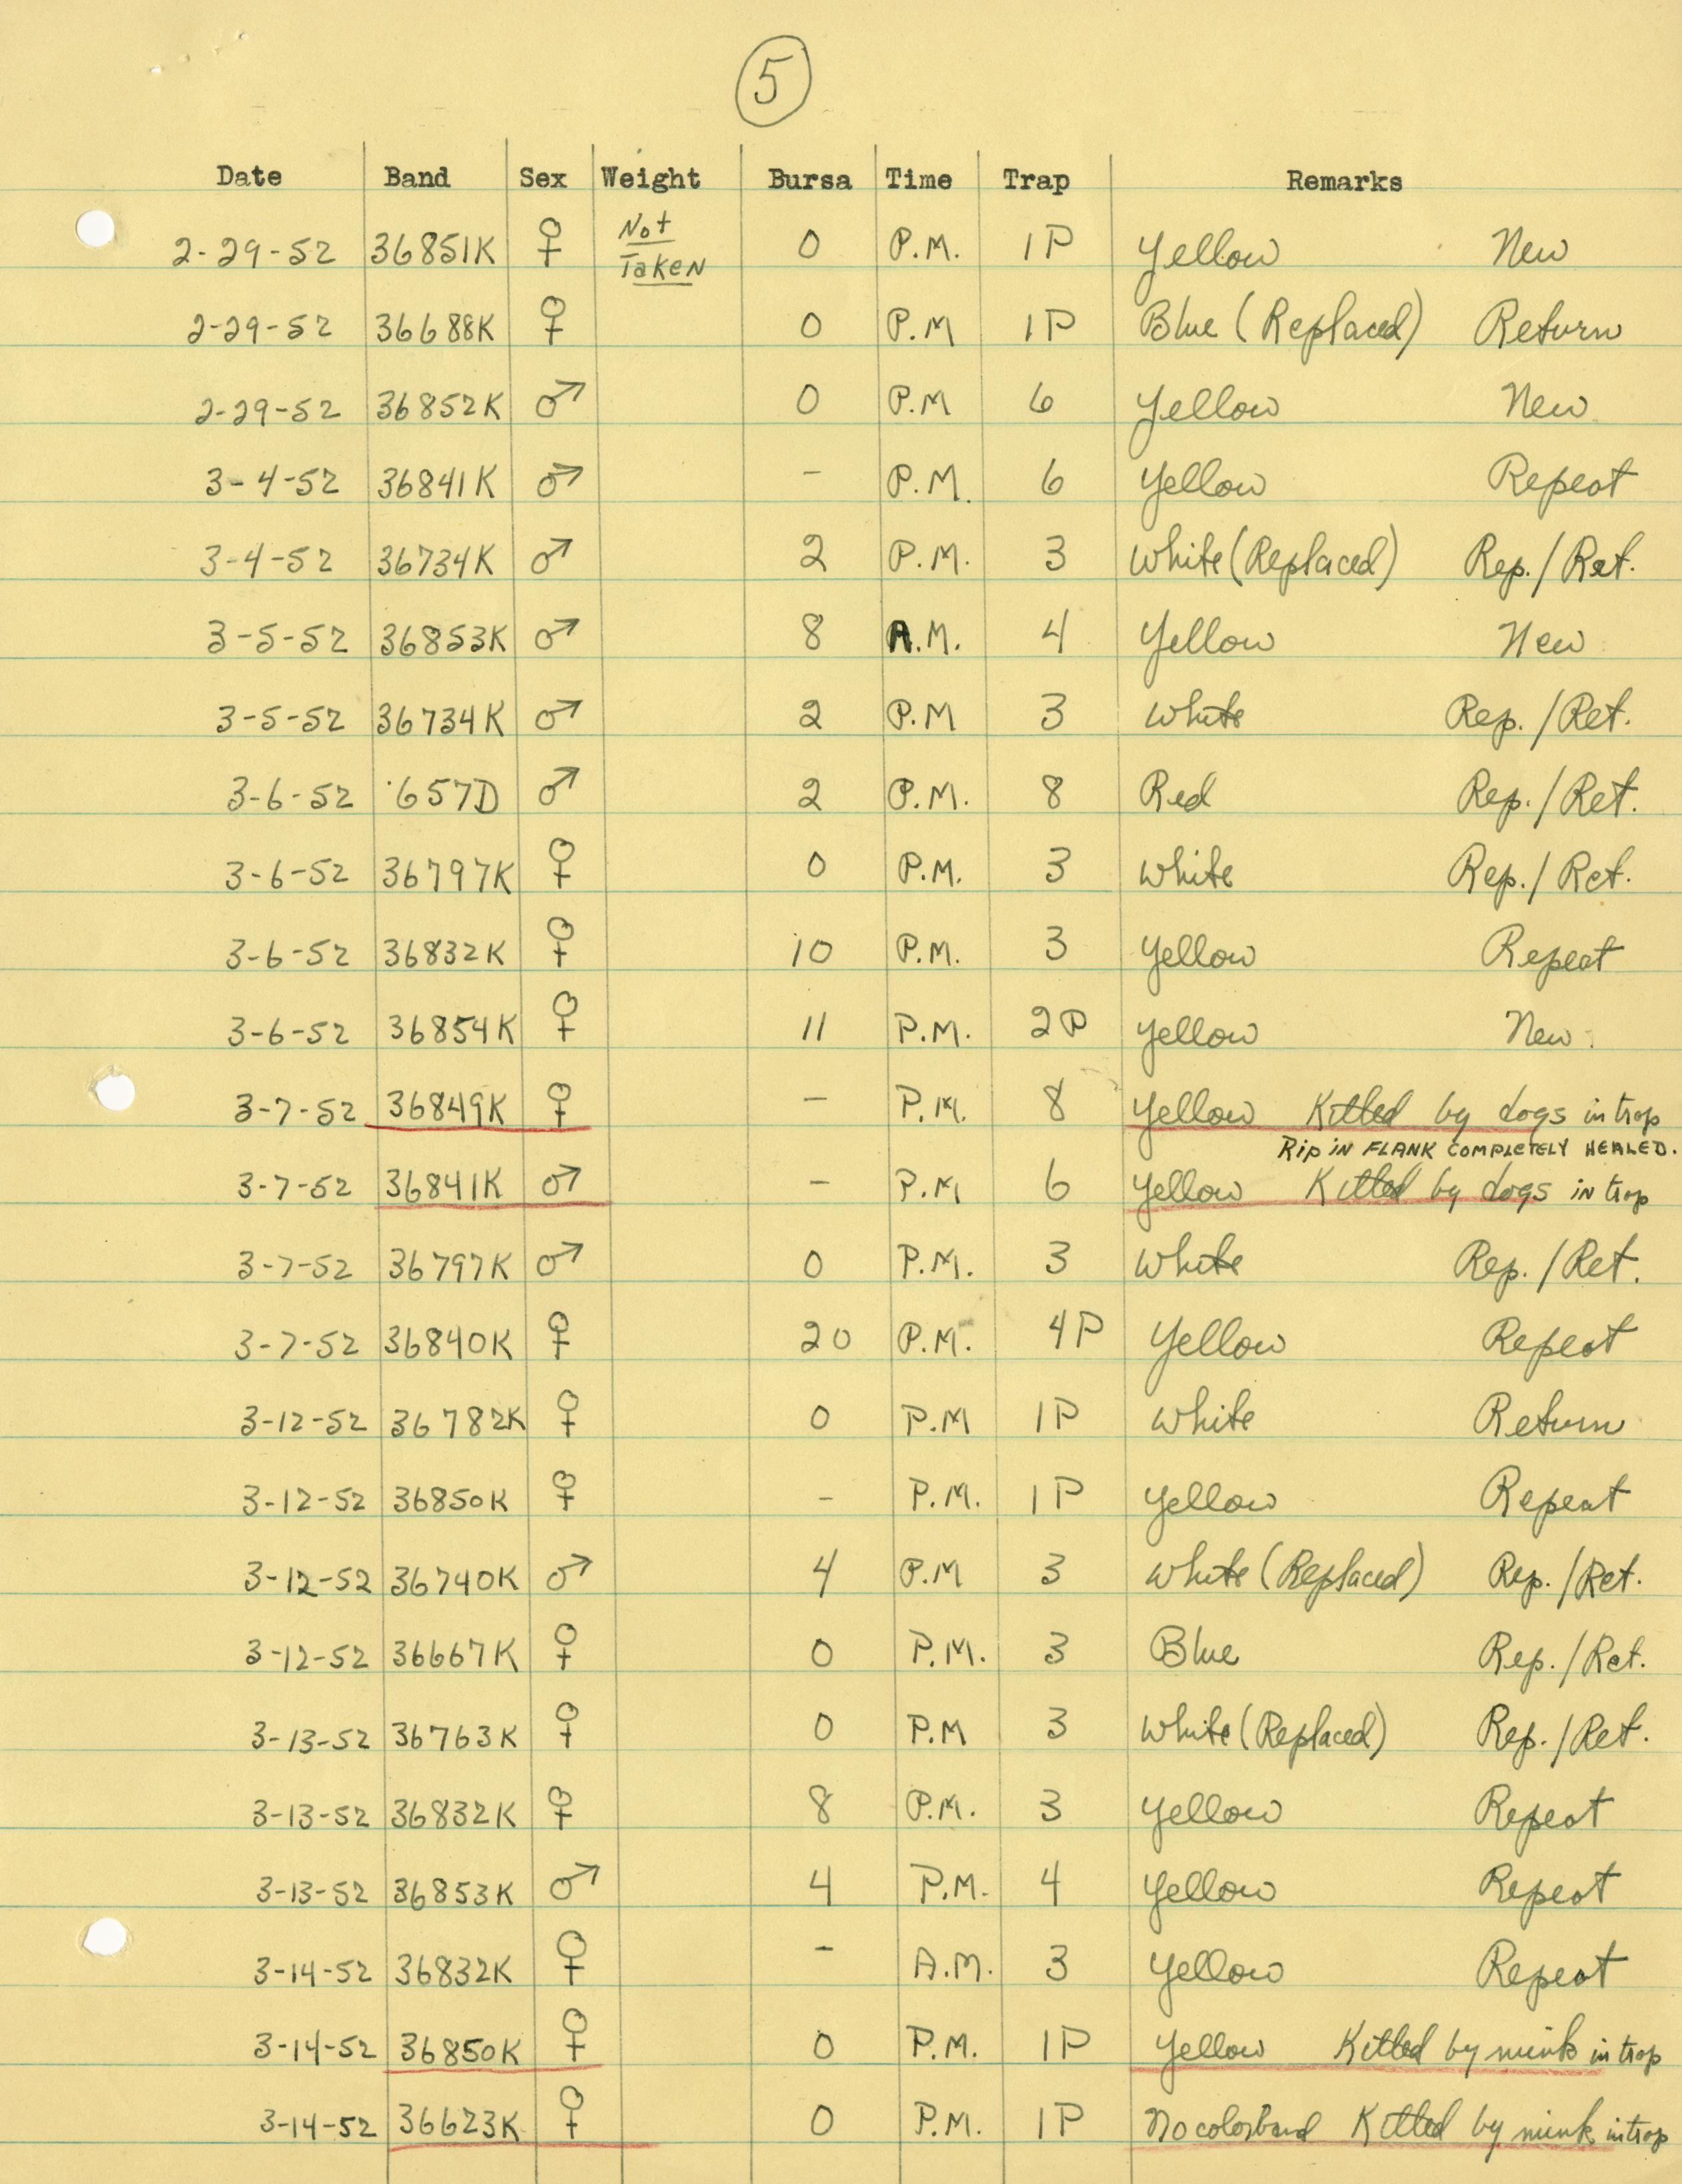 5
Date Band Sex Weight Bursa Time Trap Remarks
2-29-52 36851K ♀ Not Taken 0 P.M. 1P Yellow New
2-29-52 36688K ♀ 0 P.M 1P Blue (Replaced) Return
2-29-52 36852K ♂ 0 P.M 6 Yellow New
3-4-52 36841K ♂ - P.M. 6 Yellow Repeat
3-4-52 36734K ♂ 2 P.M. 3 White (Replaced) Rep./Ret.
3-5-52 36853K ♂ 8 A.M. 4 Yellow New
3-5-52 36734K ♂ 2 P.M 3 White Rep./Ret.
3-6-52 657D ♂ 2 P.M. 8 Red Rep./Ret.
3-6-52 36797K ♀ 0 P.M. 3 White Rep./Ret.
3-6-52 36832K ♀ 10 P.M. 3 Yellow Repeat
3-6-52 36854K ♀ 11 P.M. 2P Yellow New
3-7-52 36849K ♀ - P.M. 8 Yellow Killed by dogs in trap
Rip in FLANK COMPLETELY HEALED.
3-7-52 36841K ♂ - P.M 6 Yellow Killed by dogs in trap
3-7-52 36797K ♂ 0 P.M. 3 White Rep./Ret.
3-7-52 36840K ♀ 20 P.M. 4P Yellow Repeat
3-12-52 36782K ♀ 0 P.M 1P White Return
3-12-52 36850K ♀ - P.M. 1P Yellow Repeat
3-12-52 36740K ♂ 4 P.M 3 White (Replaced) Rep./Ret.
3-12-52 36667K ♀ 0 P.M. 3 Blue Rep./Ret.
3-13-52 36763K ♀ 0 P.M 3 White (Replaced) Rep./Ret.
3-13-52 36832K ♀ 8 P.M. 3 Yellow Repeat
3-13-52 36853K ♂ 4 P.M. 4 Yellow Repeat
3-14-52 36832K ♀ - A.M. 3 Yellow Repeat
3-14-52 36850K ♀ 0 P.M. 1P Yellow Killed by mink in trap
3-14-52 36623K ♀ 0 P.M. 1P No colorband Killed by mink in trap